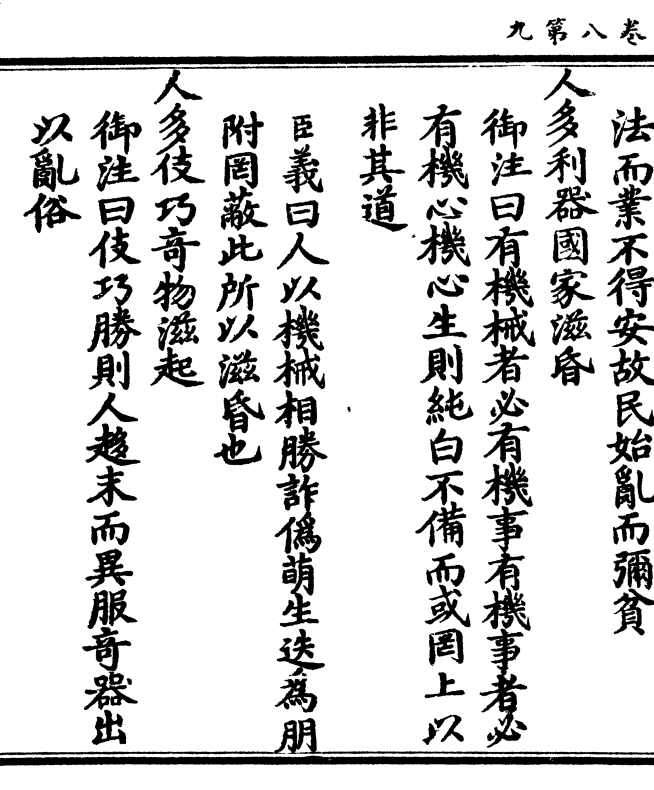 卷八第九
法而業不得安故民始亂而彌貧
人多利器國家滋昏
御注曰有機械者必有機事有機事者必
有機心機心生則純白不備而或罔上以
非其道
臣義曰人以機械相勝詐僞萌生迭爲朋
附罔蔽此所以滋昏也
人多伎巧竒物滋起
御注曰伎巧勝則人趍末而異服竒器出
以亂俗